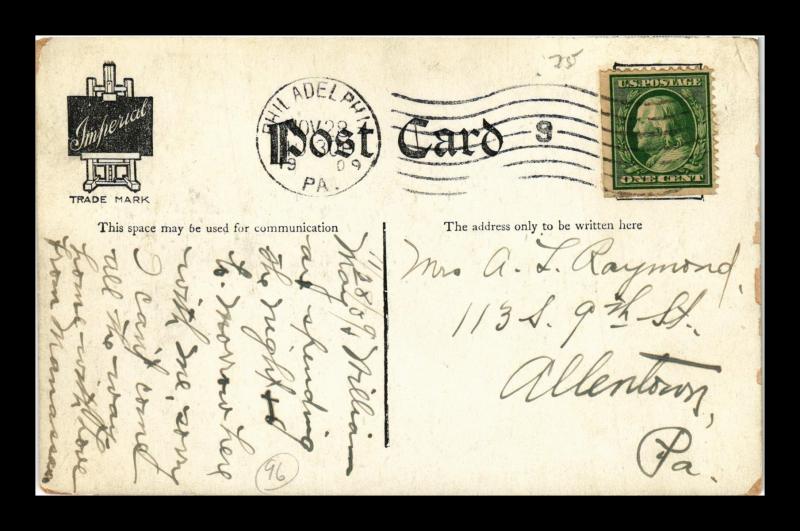 25
Imperial
TRADE MARK
PHILADELPHIA
NOV 28
1909
PA.
Post Card
9
U.S. POSTAGE
ONE CENT
This space may be used for communication
The address only to be written here
11/28/09 William
May
are spending
the night &
to-morrow here
with me, sorry
I can't come
all the way
home with
love
from
Mrs A. L. Raymond,
113 S. 9th St.
Allentown,
Pa.
96